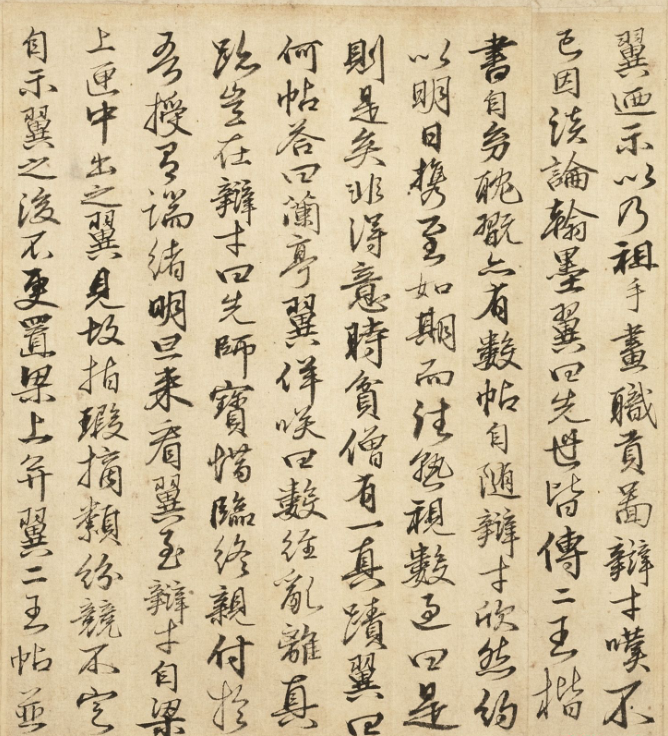 翼迺示以乃祖手畫職貢圖辯才嘆不
已因談論翰墨翼曰先世皆傳二王楷
書自幼耽翫亦有數帖自随辯才欣然約
以明日携至如期而往熟視數過曰是
則是矣非得意時貧僧有一真蹟翼曰
何帖答曰蘭亭翼佯咲曰數經亂離真
跡豈在辯才曰先師寶惜臨終親付於
吾授有端緒明旦来看翼至辯才自梁
上匣中出之翼見故指瑕摘纇紛競不定
自示翼之後不更置梁上并翼二王帖並